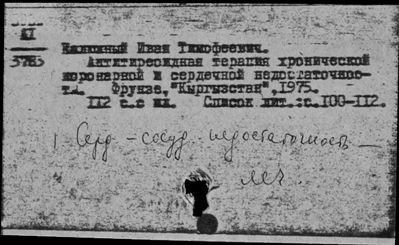 XI
3763
Иван Тимофеевич.
Антитиреоидная терапия хронической
коронарной и сердечной недостаточнос-
ти. Фрунзе, "Кыргызстан", 1975.
112 с.с ил. Список лит.:с.100-112.
1 Серд-сосуд. недостаточность —
леч.